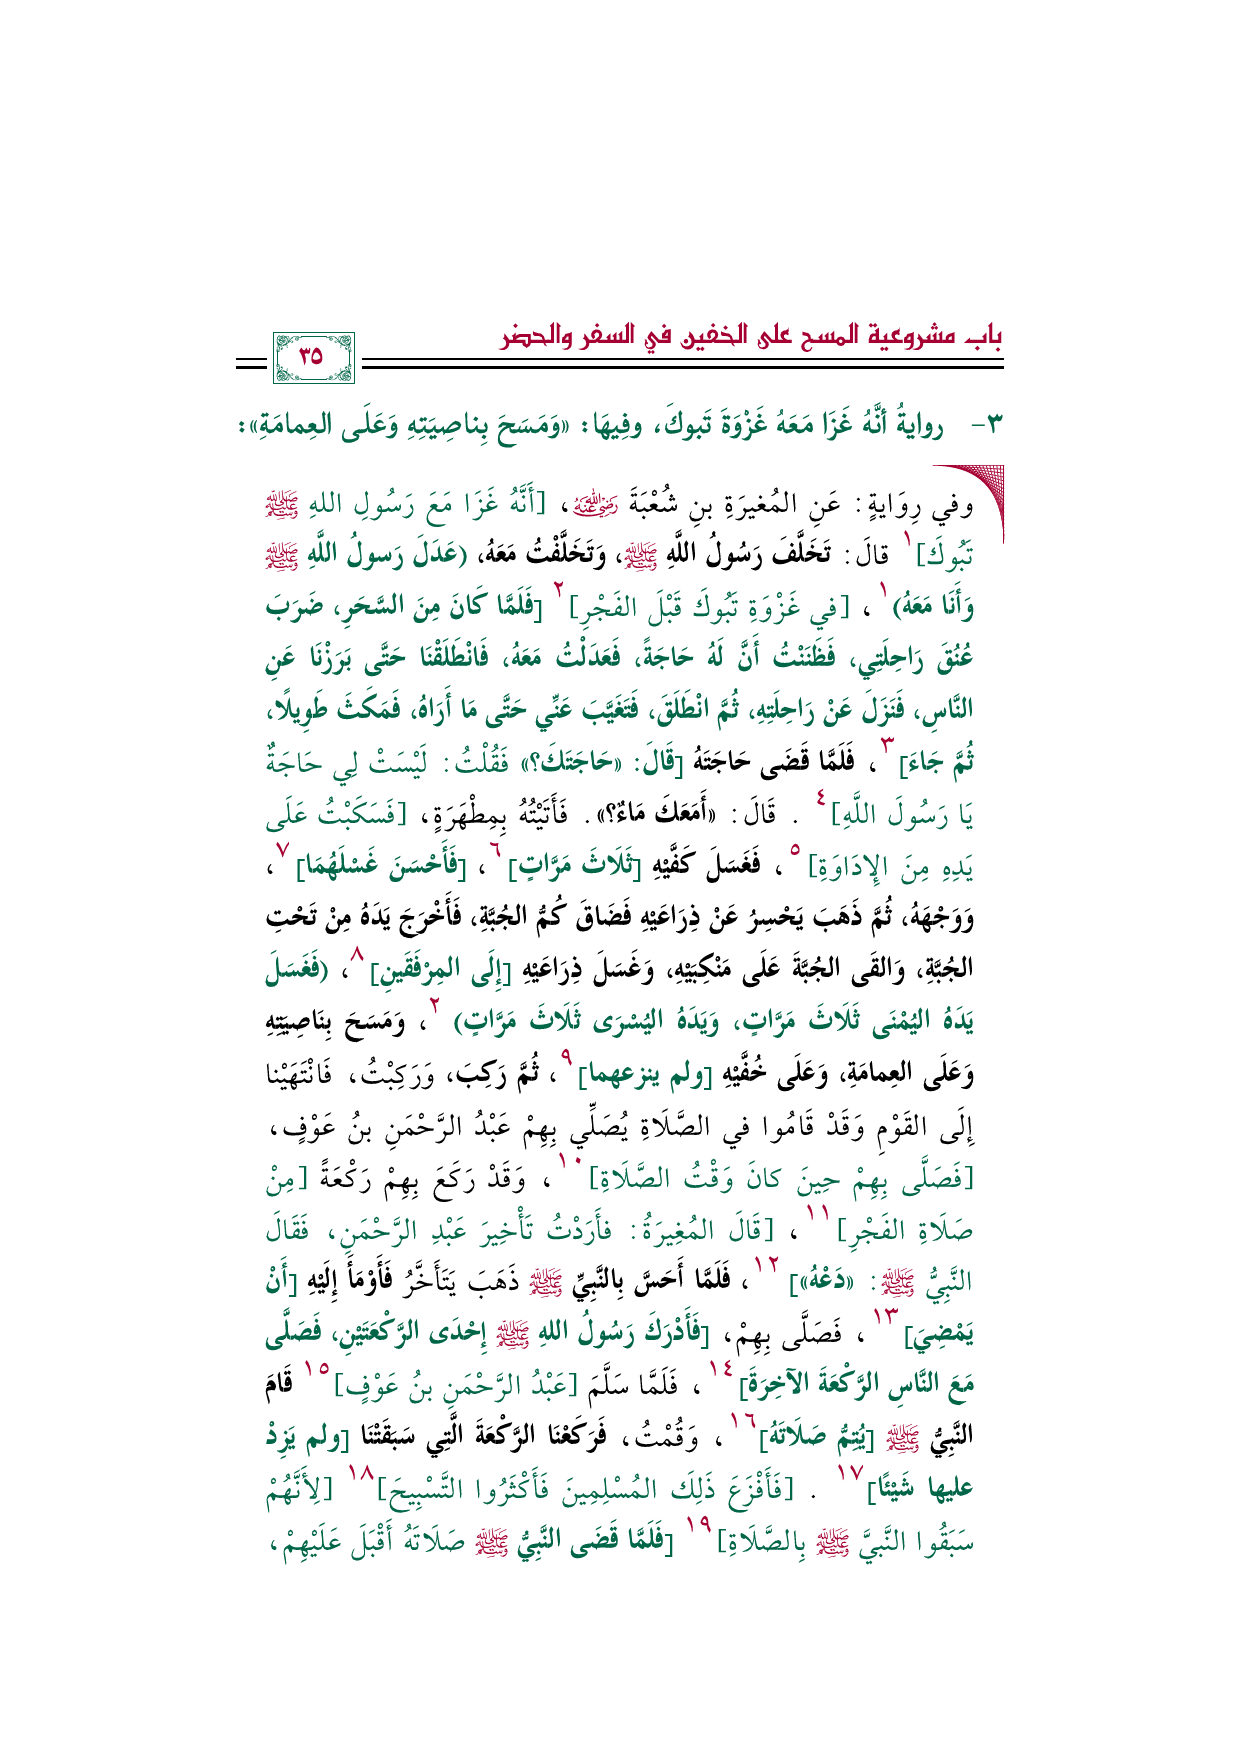 باب مشروعية المسح على الخفين في السفر والحضر
٣٥
٣- روايةُ أنَّهُ غَزَا مَعَهُ غَزْوَةَ تَبوكَ، وفِيهَا: «وَمَسَحَ بِناصِيَتِهِ وَعَلَى العِمامَةِ»:
وفي رِوَايةٍ: عَنِ المُغيرَةِ بنِ شُعْبَةَ ﵁، [أَنَّهُ غَزَا مَعَ رَسُولِ اللهِ ﷺ
تَبُوكَ]١ قالَ: تَخَلَّفَ رَسُولُ اللَّهِ ﷺ، وَتَخَلَّفْتُ مَعَهُ، (عَدَلَ رَسولُ اللَّهِ ﷺ
وَأَنَا مَعَهُ)١ ، [في غَزْوَةِ تَبُوكَ قَبْلَ الفَجْرِ]٢ [فَلَمَّا كَانَ مِنَ السَّحَرِ، ضَرَبَ
عُنُقَ رَاحِلَتِي، فَظَنَنْتُ أَنَّ لَهُ حَاجَةً، فَعَدَلْتُ مَعَهُ، فَانْطَلَقْنَا حَتَّى بَرَزْنَا عَنِ
النَّاسِ، فَنَزَلَ عَنْ رَاحِلَتِهِ، ثُمَّ انْطَلَقَ، فَتَغَيَّبَ عَنِّي حَتَّى مَا أَرَاهُ، فَمَكَثَ طَوِيلًا،
ثُمَّ جَاءَ]٣ ، فَلَمَّا قَضَى حَاجَتَهُ [قَالَ: «حَاجَتَكَ؟» فَقُلْتُ: لَيْسَتْ لِي حَاجَةٌ
يَا رَسُولَ اللَّهِ]٤ . قَالَ: «أَمَعَكَ مَاءٌ؟». فَأَتَيْتُهُ بِمِطْهَرَةٍ، [فَسَكَبْتُ عَلَى
يَدِهِ مِنَ الإِدَاوَةِ]٥ ، فَغَسَلَ كَفَّيْهِ [ثَلَاثَ مَرَّاتٍ]٦ ، [فَأَحْسَنَ غَسْلَهُمَا]٧ ،
وَوَجْهَهُ، ثُمَّ ذَهَبَ يَحْسِرُ عَنْ ذِرَاعَيْهِ فَضَاقَ كُمُّ الجُبَّةِ، فَأَخْرَجَ يَدَهُ مِنْ تَحْتِ
الجُبَّةِ، وَالقَى الجُبَّةَ عَلَى مَنْكِبَيْهِ، وَغَسَلَ ذِرَاعَيْهِ [إِلَى المِرْفَقَينِ]٨ ، (فَغَسَلَ
يَدَهُ اليُمْنَى ثَلَاثَ مَرَّاتٍ، وَيَدَهُ اليُسْرَى ثَلَاثَ مَرَّاتٍ) ٢ ، وَمَسَحَ بِنَاصِيَتِهِ
وَعَلَى العِمامَةِ، وَعَلَى خُفَّيْهِ [ولم ينزعهما]٩ ، ثُمَّ رَكِبَ، وَرَكِبْتُ، فَانْتَهَيْنا
إِلَى القَوْمِ وَقَدْ قَامُوا في الصَّلَاةِ يُصَلِّي بِهِمْ عَبْدُ الرَّحْمَنِ بنُ عَوْفٍ،
[فَصَلَّى بِهِمْ حِينَ كانَ وَقْتُ الصَّلَاةِ]١٠ ، وَقَدْ رَكَعَ بِهِمْ رَكْعَةً [مِنْ
صَلَاةِ الفَجْرِ]١١ ، [قَالَ المُغِيرَةُ: فأَرَدْتُ تَأْخِيرَ عَبْدِ الرَّحْمَنِ، فَقَالَ
النَّبِيُّ ﷺ: «دَعْهُ»]١٢ ، فَلَمَّا أَحَسَّ بِالنَّبِيِّ ﷺ ذَهَبَ يَتَأَخَّرُ فَأَوْمَأَ إِلَيْهِ [أَنْ
يَمْضِيَ]١٣ ، فَصَلَّى بِهِمْ، [فَأَدْرَكَ رَسُولُ اللهِ ﷺ إِحْدَى الرَّكْعَتَيْنِ، فَصَلَّى
مَعَ النَّاسِ الرَّكْعَةَ الآخِرَةَ]١٤ ، فَلَمَّا سَلَّمَ [عَبْدُ الرَّحْمَنِ بنُ عَوْفٍ]١٥ قَامَ
النَّبِيُّ ﷺ [يُتِمُّ صَلَاتَهُ]١٦ ، وَقُمْتُ، فَرَكَعْنَا الرَّكْعَةَ الَّتِي سَبَقَتْنَا [ولم يَزِدْ
عليها شَيْئًا]١٧ . [فَأَفْزَعَ ذَلِكَ المُسْلِمِينَ فَأَكْثَرُوا التَّسْبِيحَ]١٨ [لِأَنَّهُمْ
سَبَقُوا النَّبيَّ ﷺ بِالصَّلَاةِ]١٩ [فَلَمَّا قَضَى النَّبِيُّ ﷺ صَلَاتَهُ أَقْبَلَ عَلَيْهِمْ،